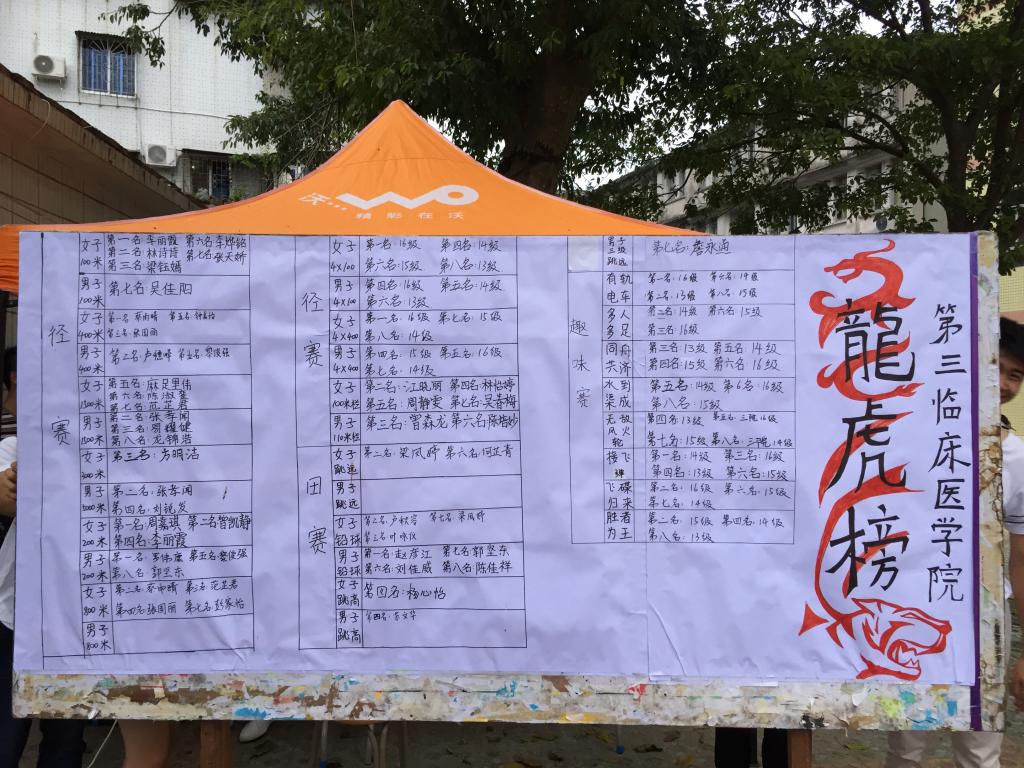 沃...
WO
精彩在沃
第三临床医学院
龍虎榜
径赛
女子100米
第一名:李丽霞 第六名:李烨铭
第二名:林诗诗 第七名:张天娇
第三名:梁钰嫣
男子100米
第七名:吴佳阳
女子400米
第一名:蔡雨晴
男子400米
女子1500米
第五名:麻足里伟
第六名:陈淑銮
男子1500米
第二名:张孝闻
第八名:龙锦浩
女子3000米
第三名:方明洁
男子5000米
第二名:张孝闻
第四名:刘锐发
女子200米
第一名:周嘉琪 第二名:曾凯静
第四名:李丽霞
男子200米
第八名:郭坚东
女子800米
第四名:张国丽 第七名:彭家怡
男子800米
径赛
女子4x100
第一名:16级 第四名:14级
第六名:15级 第八名:13级
男子4x100
第四名:16级 第五名:14级
第六名:13级
女子4x400
第一名:16级 第七名:15级
第八名:14级
男子4x400
第四名:15级 第五名:16级
第七名:14级
女子100米栏
第二名:江晓丽 第四名:林怡婷
第五名:周静雯 第七名:吴春梅
男子110米栏
第三名:曾森龙 第六名:陈培妙
田赛
女子跳远
第二名:梁凤婷 第六名:何芷青
男子跳远
女子铅球
男子铅球
第一名:赵彦江 第七名:郭坚东
第六名:刘佳威 第八名:陈佳祥
女子跳高
第四名:杨心怡
男子跳高
趣味赛
男子三级跳远
第七名:詹永通
有轨电车
第一名:16级 第六名:14级
第二名:13级 第八名:15级
多人多足
第二名:14级 第六名:15级
第三名:16级
同舟共济
第三名:13级 第五名:14级
第四名:15级 第六名:16级
水到渠成
第五名:14级 第6名:16级
第八名:15级
无敌风火轮
第四名:13级 第五名:三院16级
第七名:15级 第八名:三院14级
接飞碟
第一名:14级 第三名:16级
第四名:13级 第六名:15级
飞碟归来
第二名:16级 第六名:15级
第七名:14级
胜者为王
第二名:15级 第四名:14级
第八名:13级